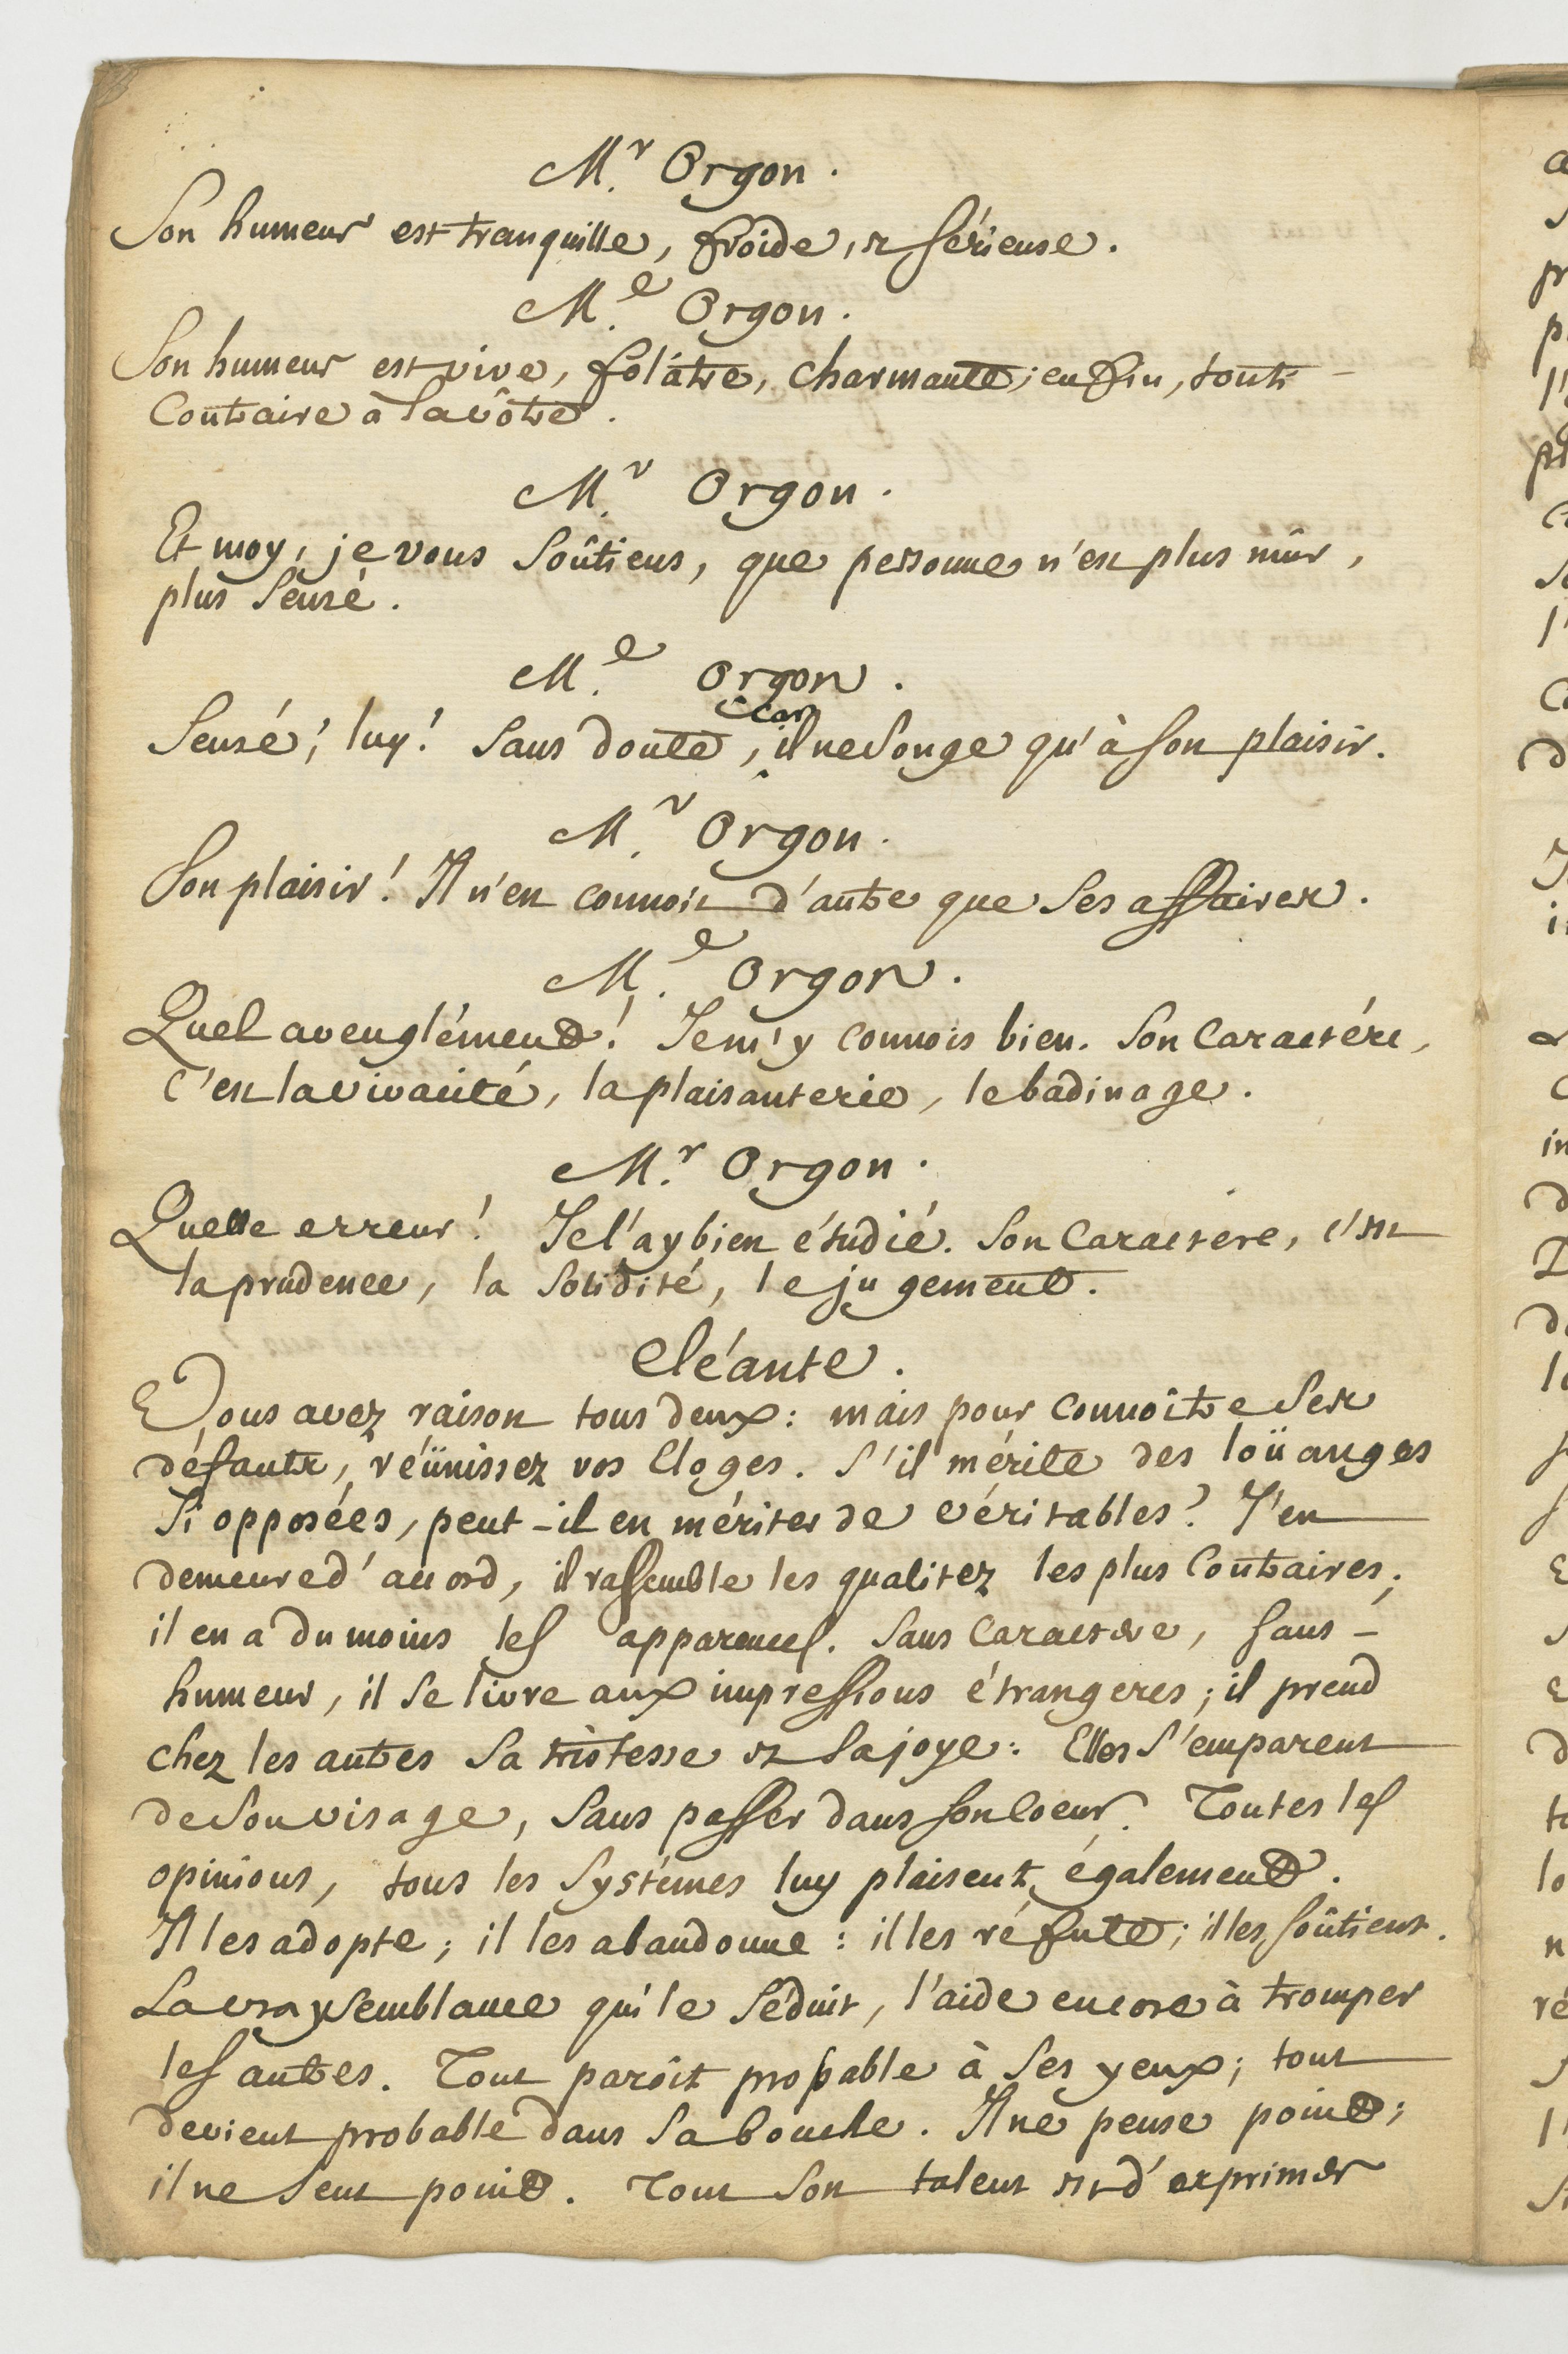 M.r Orgon.
Son humeur est tranquille, froide, et sérieuse.
M.e Orgon.
Son humeur est vive, folâtre, charmante; enfin, toute
contraire à la vôtre.
M.r Orgon.
Et moy, je vous soûtiens, que personne n'est plus mûr,
plus sensé.
M.e Orgon.
car
Sensé, luy! sans doute, il ne songe qu'à son plaisir.
M.r Orgon.
Son plaisir! Il n'en connoit d'autre que ses affaires.
M.e Orgon.
Quel aveuglément! Je m'y connois bien. Son caractére,
c'est la vivacité, la plaisanterie, le badinage.
M.r Orgon.
Quelle erreur! Je l'ay bien étudié. Son caractere, c'est
la prudence, la solidité, le jugement.
Cléante.
Vous avez raison tous deux: mais pour connoître ses
défauts, réünissez vos éloges. S'il mérite des loüanges
si opposées, peut-il en mériter de véritables? J'en
demeure d'accord, il rassemble les qualitez les plus contraires;
il en a du moins les apparences. Sans caractere, sans
humeur, il se livre aux impressions étrangeres; il prend
chez les autres sa tristesse et sa joye: Elles s'emparent
de son visage, sans passer dans son coeur. Toutes les
opinions, tous les systémes luy plaisent également.
Il les adopte; il les abandonne: il les réfute; il les soûtient.
La vraysemblance qui le séduit, l'aide encore à tromper
les autres. Tout paroît probable à ses yeux; tout
devient probable dans sa bouche. Il ne pense point;
il ne sent point. Tout son talent est d'exprimer